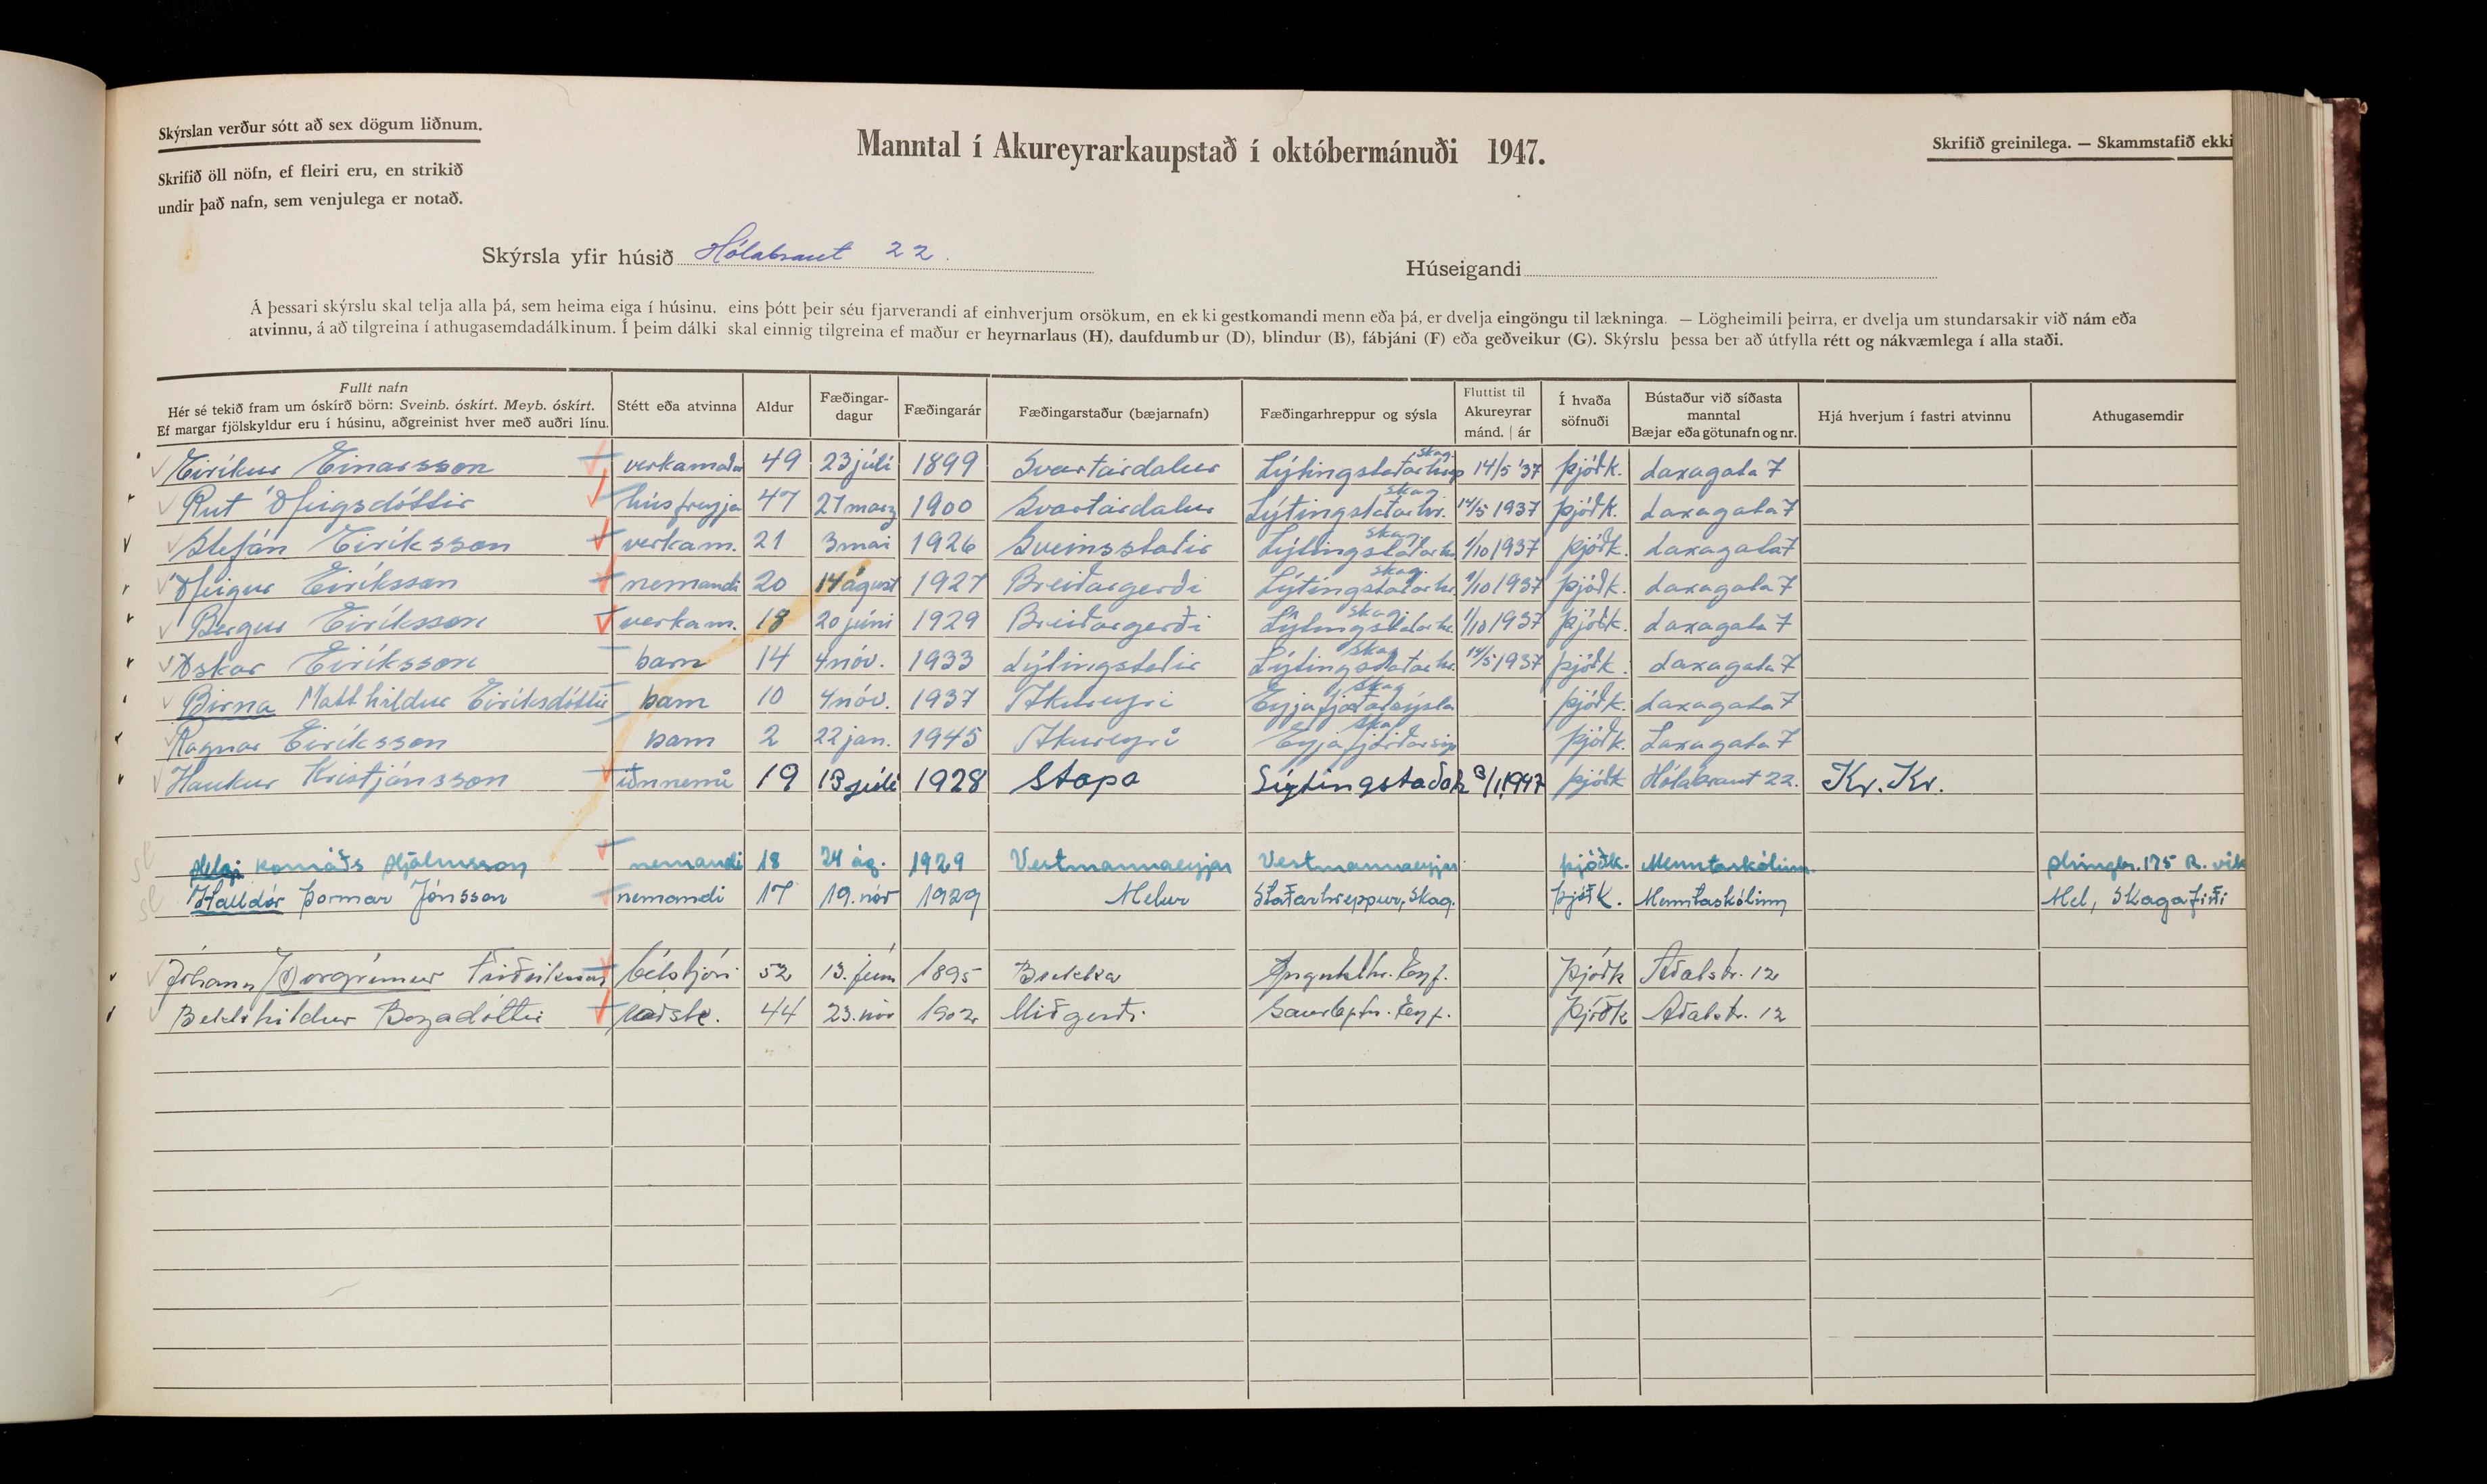 Skýrslan verður sótt að sex dögum liðnum.
Skrifið öll nöfn, ef fleiri eru, en strikið
undir það nafn, sem venjulega er notað.
Manntal í Akureyrarkaupstað í októbermánuði 1947.
Skrifið greinilega. — Skammstafið ekki
Skýrsla yfir húsið Hólabraut 22.
Húseigandi
Á þessari skýrslu skal telja alla þá, sem heima eiga í húsinu, eins þótt þeir séu fjarverandi af einhverjum orsökum, en ekki gestkomandi menn eða þá, er dvelja eingöngu til lækninga. — Lögheimili þeirra, er dvelja um stundarsakir við nám eða
atvinnu, á að tilgreina í athugasemdadálkinum. Í þeim dálki skal einnig tilgreina ef maður er heyrnarlaus (H), daufdumbur (D), blindur (B), fábjáni (F) eða geðveikur (G). Skýrslu þessa ber að útfylla rétt og nákvæmlega í alla staði.
Fullt nafn Hér sé tekið fram um óskírð börn: Sveinb. óskírt. Meyb. óskírt. Ef margar fjölskyldur eru í húsinu, aðgreinist hver með auðri línu. Stétt eða atvinna Aldur Fæðingar-dagur Fæðingarár Fæðingarstaður (bæjarnafn) Fæðingarhreppur og sýsla Fluttist til Akureyrar mánd. | ár Í hvaða söfnuði Bústaður við síðasta manntal Bæjar eða götunafn og nr. Hjá hverjum í fastri atvinnu Athugasemdir
Eiríkur Einarsson verkamaður 49 23 júlí 1899 Svartárdalur Lýtingstaðarhrep Skag. 14/5 '37 þjóðk. Laxagata 7
Rut Ófeigsdóttir húsfreyja 47 27 marz 1900 Svartárdalur Lýtingstaðarhr. Skag 14/5 1937 þjóðk. Laxagata 7
Stefán Eiríksson verkam. 21 3 mai 1926 Sveinsstaðir Lýtingstaðarh. Skag. 1/10 1937 þjóðk. Laxagata 7
Ófeigur Eiríksson nemandi 20 14 ágúst 1927 Breiðargerði Lýtingstaðarhr. Skag. 1/10 1937 þjóðk. Laxagata 7
Bergur Eiríksson verkam. 18 20 júni 1929 Breiðargerði Lýtingstaðarhr. Skag. 1/10 1937 þjóðk. Laxagata 7
Óskar Eiríksson barn 14 4 nóv. 1933 Lýtingstaðir Lýtingstaðarhr. Skag 14/5 1937 þjóðk. Laxagata 7
Birna Matthildur Eiríksdóttir barn 10 4 nóv. 1937 Akureyri Eyjafjarðarsýsla Skag þjóðk. Laxagata 7
Ragnar Eiríksson barn 2 22 jan. 1945 Akureyri Skag þjóðk. Laxagata 7
Haukur Kristjánsson iðnnemi 19 13 júlí 1928 Stapa Lýtingstaðah 1947 þjóðk Hólabraut 22. Kr. Kr.
Helgi Hjálmsson nemandi 18 24 ág. 1929 Vestmannaeyjar Vestmannaeyjar þjóðk. Menntaskólinn Hringbr. 175 R.vík
Halldór Þormar Jónsson nemandi 17 19. nóv 1929 Melur Staðarhreppur, Skag. Þjóðk. Menntaskólinn Mel, Skagafirði
Jóhann Þorgrímur Friðriksson bílstjóri 52 13. júní 1895 Brekka Öngulsthr. Eyf. Þjóðk Aðalstr. 12
Bogadóttir ráðsk. 44 23. nóv 1902 Miðgerði Saurbhr. Eyf. Þjóðk Aðalstr. 12